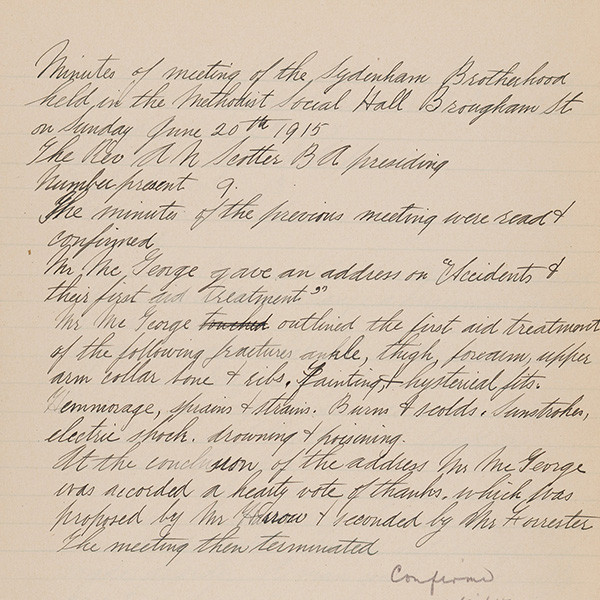 Minutes of meeting of the Sydenham Brotherhood
held in the Methodist Social Hall Brougham St
on Sunday June 20th 1915
The Rev A N Scotter B A presiding
Number present 9.
The minutes of the previous meeting were read &
confirmed
Mr Mc George gave an address on "Accidents &
their first aid treatment"
Mr Mc George touched outlined the first aid treatment
of the following fractures ankle, thigh, forearm, upper
arm collar bone & ribs. Fainting & hysterical fits.
Hemmorage, sprains & strains. Burns & scolds. Sunstrokes,
electric shock. drowning & poisening.
At the conclusion of the address Mr Mc George
was accorded a hearty vote of thanks. which was
proposed by Mr & seconded by Mr Forrester
The meeting then terminated
Confirmed